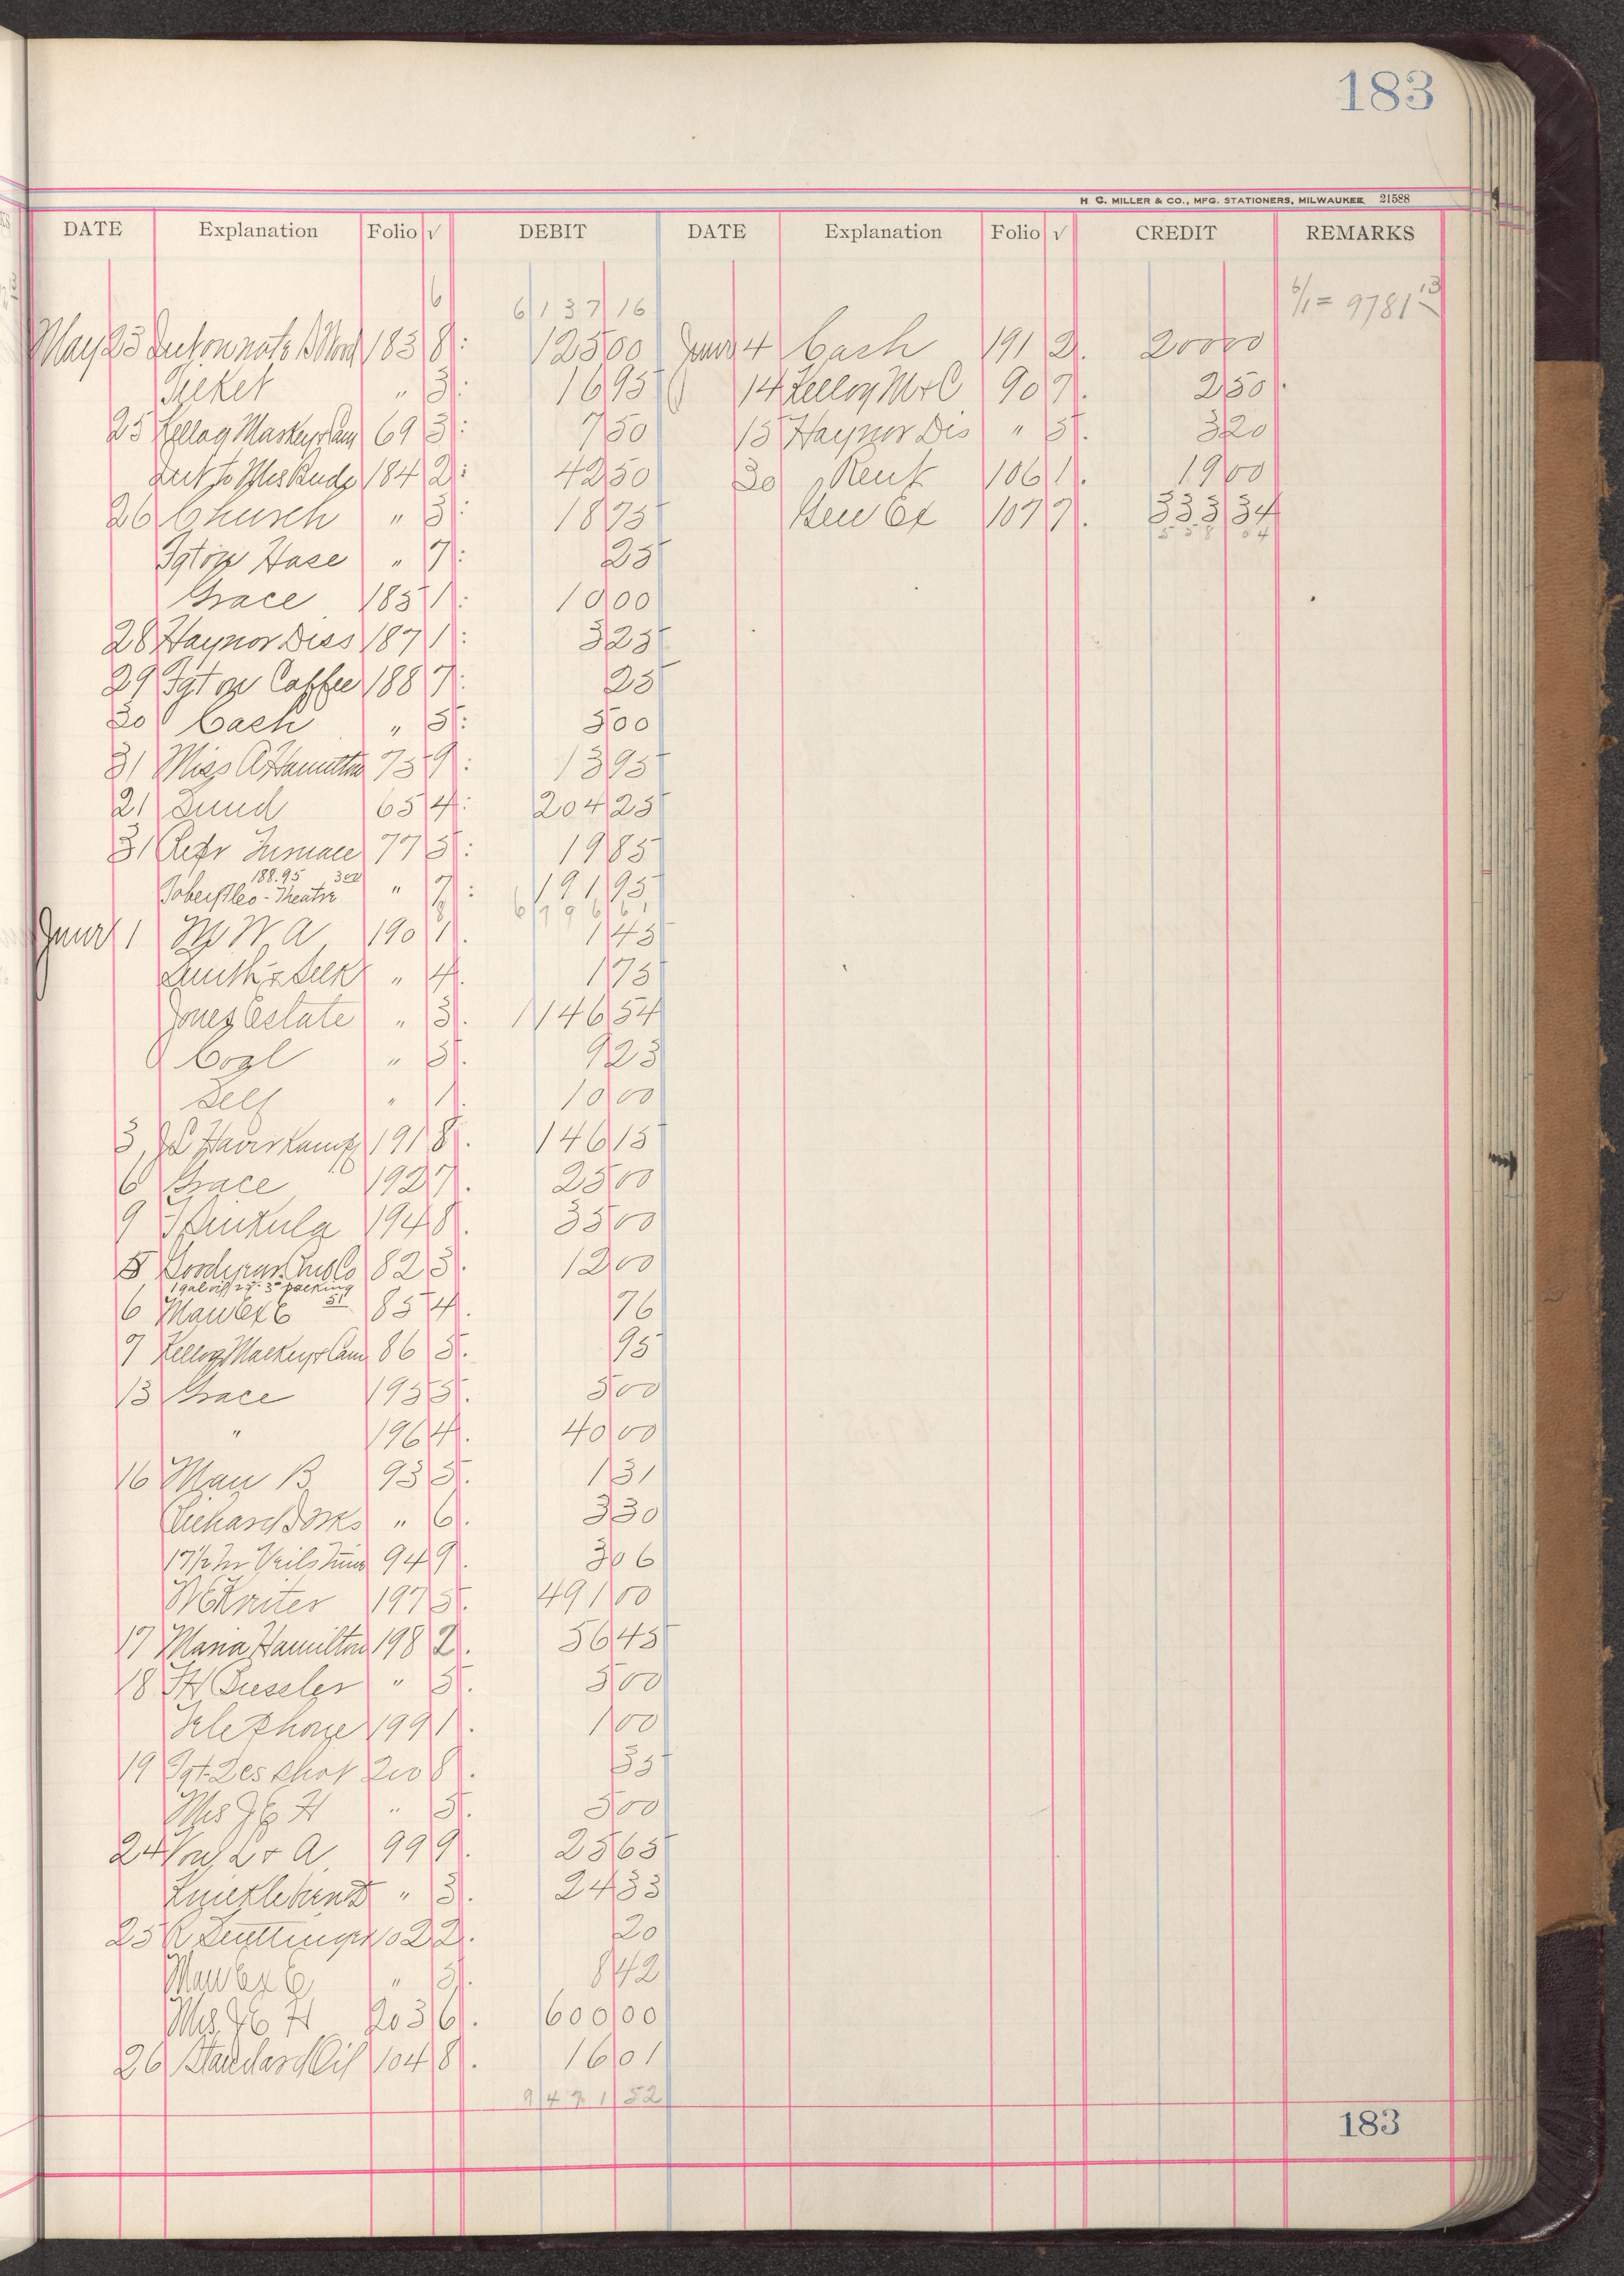 183
H. C. MILLER & CO., MFG. STATIONERS, MILWAUKEE 21588
DATE Explanation Folio √ DEBIT DATE Explanation Folio √ CREDIT REMARKS
6 6137 16 6/1 = 9781 13
May 23 Int on note 183 8 125 00 June 4 Cash 191 2 200 00
Ticket " 3 16 95 14 Kellog M & C 90 7 2 50
25 Kellog Mackey & Cam 69 3 7 50 15 Haynor Dis " 5 3 20
Int to Mrs 184 2 42 50 30 Rent 106 1 19 00
26 Church " 3 18 75 Gen Ex 107 7 333 34
558 04
Fgt on Hose " 7 25
Grace 185 1 10 00
28 Haynor Diss 187 1 3 25
29 Fgt on Coffee 188 7 25
30 Cash " 5 5 00
31 Miss A Hamilton 75 9 13 95
21 Sund 65 4 204 25
31 Repr Furnace 77 5 19 85
188.95 3 00
Theatre " 7 191 95
8 6796 61
June 1 M W A 190 1 1 45
" 4 1 75
Jones Estate " 3 1146 54
Coal " 5 9 23
Self " 1 10 00
3 J C Haverkampf 191 8 146 15
6 Grace 192 7 25 00
9 194 8 35 00
5 82 3 12 00
packing
6 Man Ex C 51 85 4 76
7 Kellog Mackey & Cam 86 5 95
13 Grace 195 5 5 00
" 196 4 40 00
16 Man B 93 5 1 31
Richard " 6 3 30
17 1/2 hr 94 9 3 06
197 5 491 00
17 Maria Hamilton 198 2 56 45
18 " 5 5 00
Telephone 199 1 1 00
19 Fgt 200 8 35
Mrs J E H " 5 5 00
24 L & A 99 9 25 65
" 3 24 33
25 R 102 2 20
Man Ex C " 5 8 42
Mrs J E H 203 6 600 00
26 Standard Oil 104 8 16 01
9491 52
183